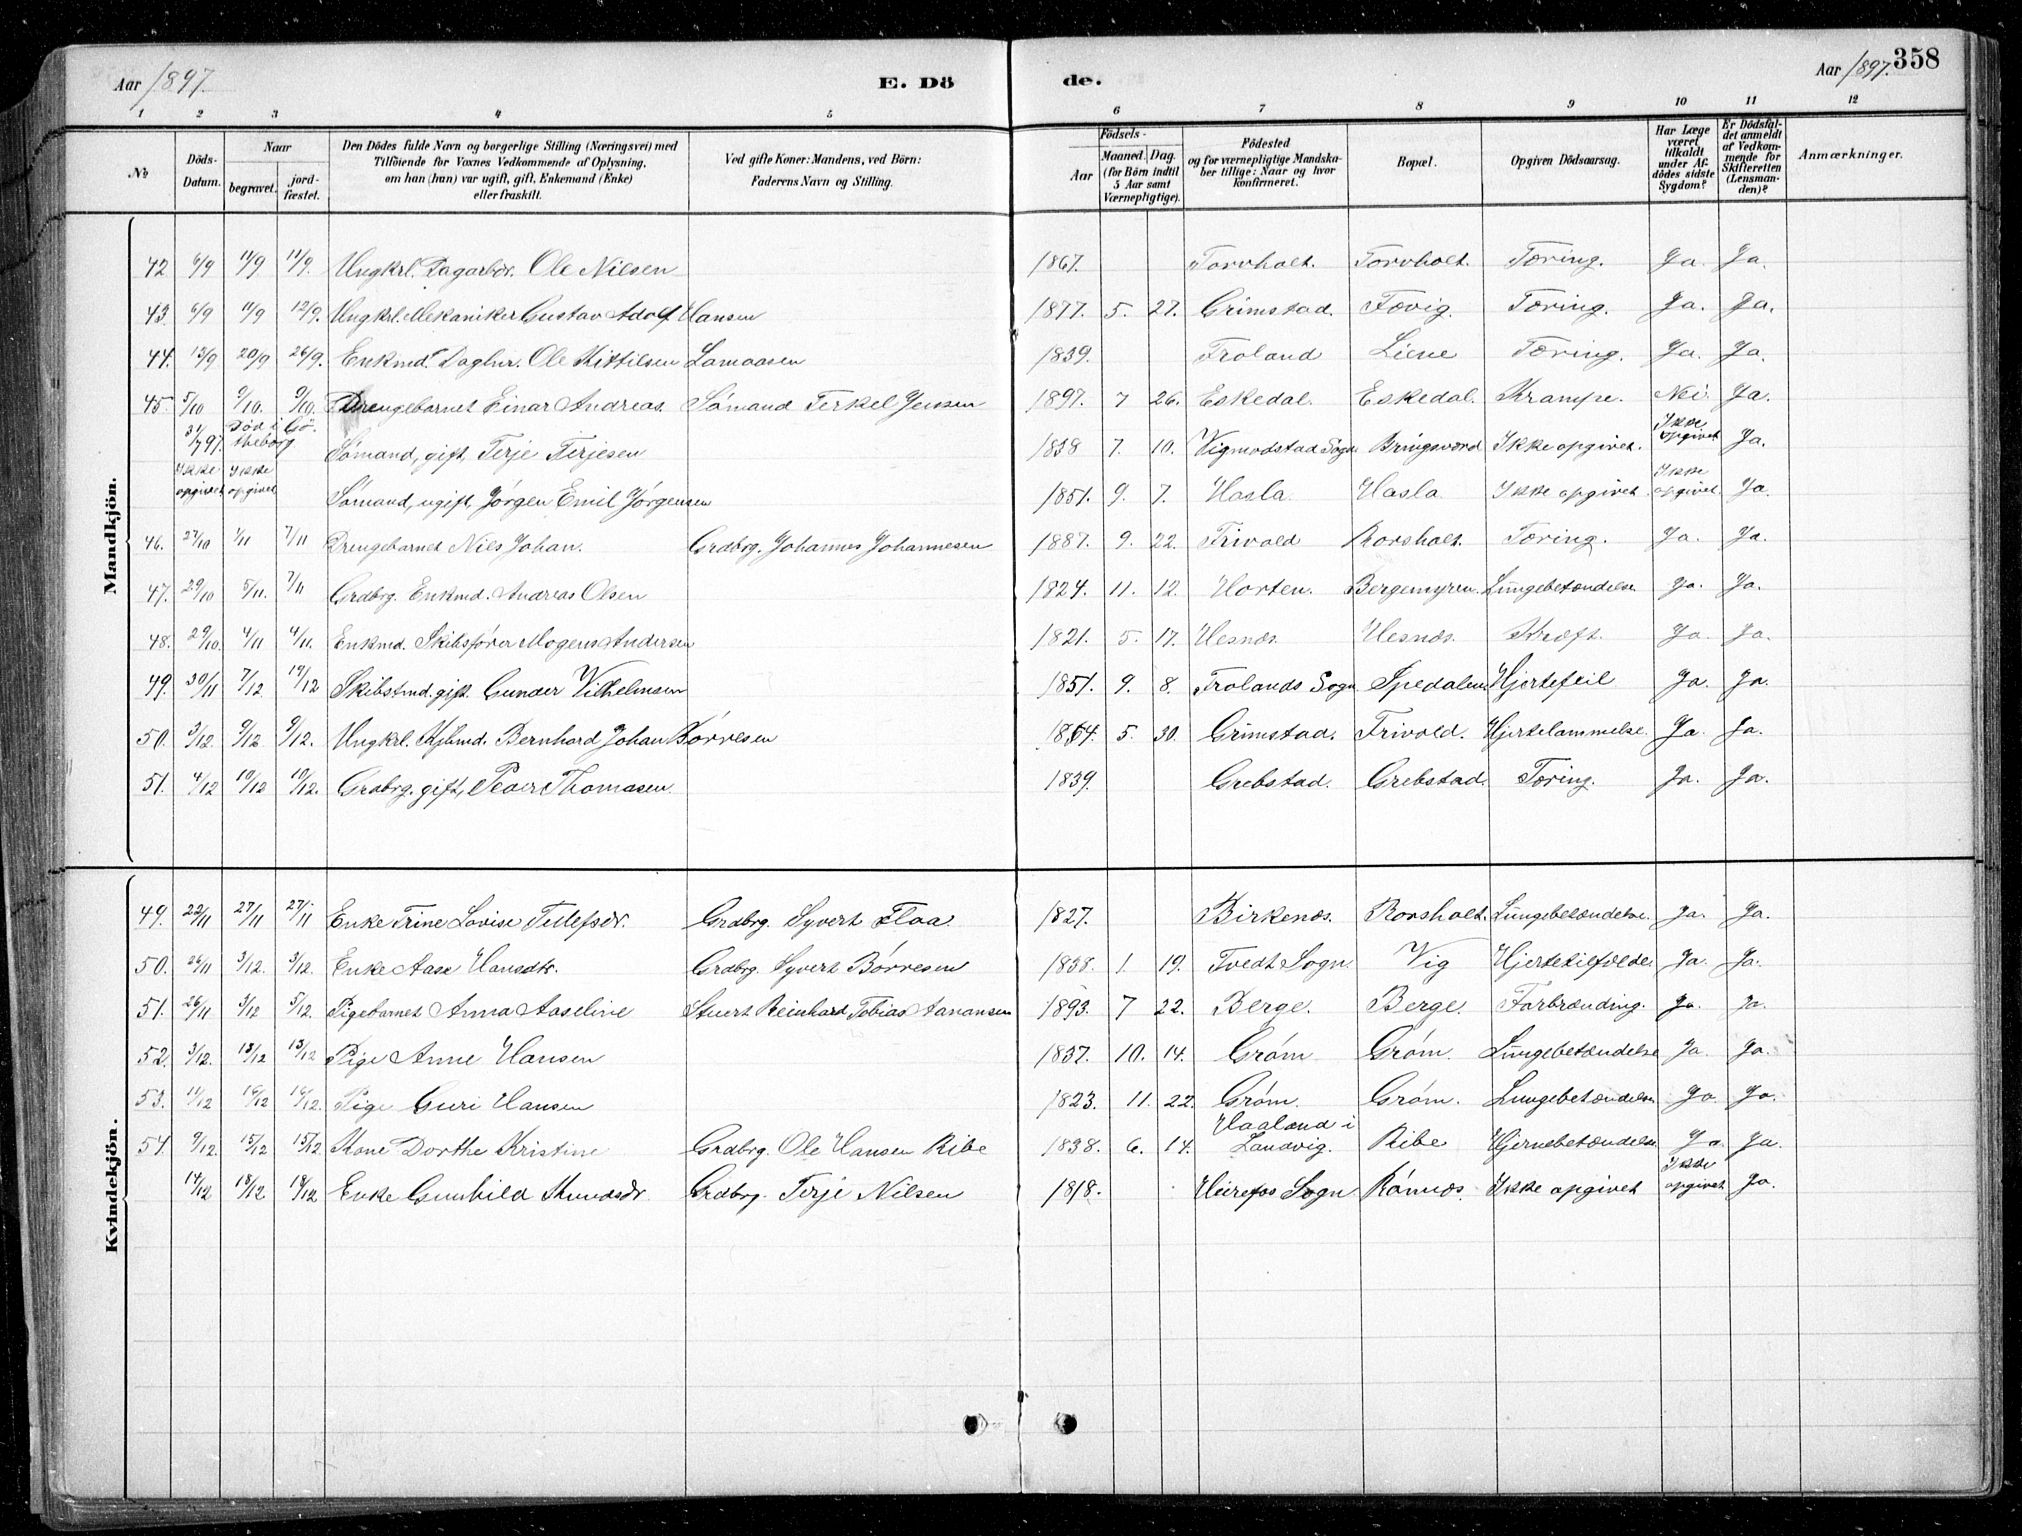 Aar 1897. E. Dö de. Aar 1897. 358
1 2 3 4 5 6 7 8 9 10 11 12
No Döds-Datum. Naar begravet. jordfæstet. Den Dödes fulde Navn og borgerlige Stilling (Næringsvei) med Tilföiende for Voxnes Vedkommende af Oplysning, om han (hun) var ugift, gift, Enkemand (Enke) eller fraskilt. Ved gifte Koner: Mandens, ved Börn: Faderens Navn og Stilling. Födsels- Aar Maaned. Dag. (for Börn indtil 5 Aar samt Værnepligtige). Födested og for værnepligtige Mandskaber tillige: Naar og hvor konfirmeret. Bopæl. Opgiven Dödsaarsag. Har Læge været tilkaldt under Afdödes sidste Sygdom? Er Dödsfaldet anmeldt af Vedkommende for Skifteretten (Lensmanden)? Anmærkninger.
Mandkjön.
42 6/9 11/9 11/9. Ungkrl. Dagarbdr. Ole Nilsen 1867. Torvholt. Torvholt. Tæring. Ja. Ja.
43. 6/9 11/9 12/9. Ungkrl. Mekaniker Gustav Adolf Hansen 1877. 5. 27. Grimstad. Fævig. Tæring. Ja. Ja.
44. 13/9 20/9 26/9. Enkmd. Ole Kittilsen Lamaasen 1839. Froland Liene Tæring. Ja. Ja.
45. 5/10 9/10. 9/10. Drengebarnet Einar Andreas. Sömand Terkel Jensen 1897. 7 26. Eskedal. Eskedal. Krampe. Nei. Ja.
31/7 97. Död i Götheborg Sömand, gift, Terje Terjesen 1838 7. 10. Vigmodstad Sogn Bringsværd Ikke opgivet. Ikke opgivet Ja.
Ikke opgivet Ikke opgivet Sömand, ugift, Jörgen Emil Jörgensen 1851. 9. 7. Hasla. Hasla Ikke opgivet. Ikke opgivet. Ja.
46. 27/10 1/11 7/11 Drengebarnet Niels Johan. Grdbrg. Johannes Johannesen 1887. 9. 22. Frivold Rorsholt. Tæring. Ja. Ja.
47. 29/10 5/11. 7/11 Grdbrg. Enkmd. Andreas Olsen 1824. 11. 12. Horten. Bergemyren. Lungebetændelse. Ja. Ja.
48. 29/10. 4/11 4/11. Enkmd. Skibsförer Mogens Andersen 1821. 5. 17. Hesnæs. Hesnæs. Kræft. Ja. Ja.
49. 30/11 7/12 19/12 Skibstmd. gift. Gunder Vilhelmsen 1851. 9. 8. Frolands Sogn Spedalen Hjertefeil Ja. Ja.
50. 3/12. 9/12 9/12. Ungkrl. Bernhard Johan Börresen 1864. 5. 30. Grimstad. Frivold. Hjertelammelse. Ja. Ja.
51. 4/12 10/12 10/12. Grdbrg. gift, Peder Thomasen. 1839. Grebstad. Grebstad. Tæring. Ja. Ja.
Kvindekjön.
49. 22/11 27/11 27/11 Enke Trine Lovise Tellefsdr. Grdbrg. Syvert Flaa. 1827. Birkenæs. Rorsholt. Lungebetændelse. Ja. Ja.
50. 26/11 3/12. 3/12. Enke Aase Hansdtr. Grdbrg. Syvert Börresen 1838. 1. 19. Tvedt Sogn. Vig Hjertetilfælde. Ja. Ja.
51. 26/11 3/12 5/12. Pigebarnet Anna Aaseline Stuert Reinhard Tobias Aanansen 1893. 7 22. Berge. Berge. Forbrænding. Ja. Ja.
52. 3/12. 13/12 13/12 Pige Anne Hansen 1837. 10. 14. Gröm Gröm. Lungebetændelse Ja. Ja.
53. 11/12 16/12 16/12. Pige Guri Hansen 1823. 11. 22. Gröm. Gröm. Lungebetændelse Ja. Ja.
54. 9/12. 15/12 15/12 Kone Dorthe Kristine Grdbrg. Ole Hansen Ribe 1838. 6. 14. Haaland i Landvig. Ribe Hjernebetændelse Ja. Ja.
14/12 18/12 18/12 Enke Gunhild Knudsdr. Grdbrg. Terje Nilsen 1818. Heirefos Sogn Rönnæs. Ikke opgivet Ikke opgivet Ja.